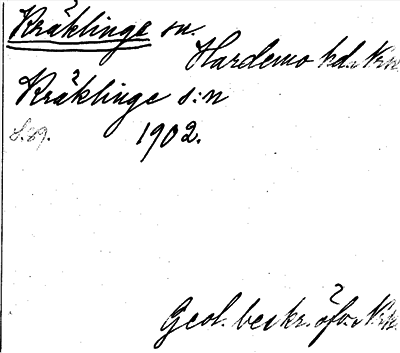 Kräklinge sn.
Hardemo hd. Nrk.
Kräklinge s:n
S. 89. 1902.
Geol. beskr. öfv. Nrk.